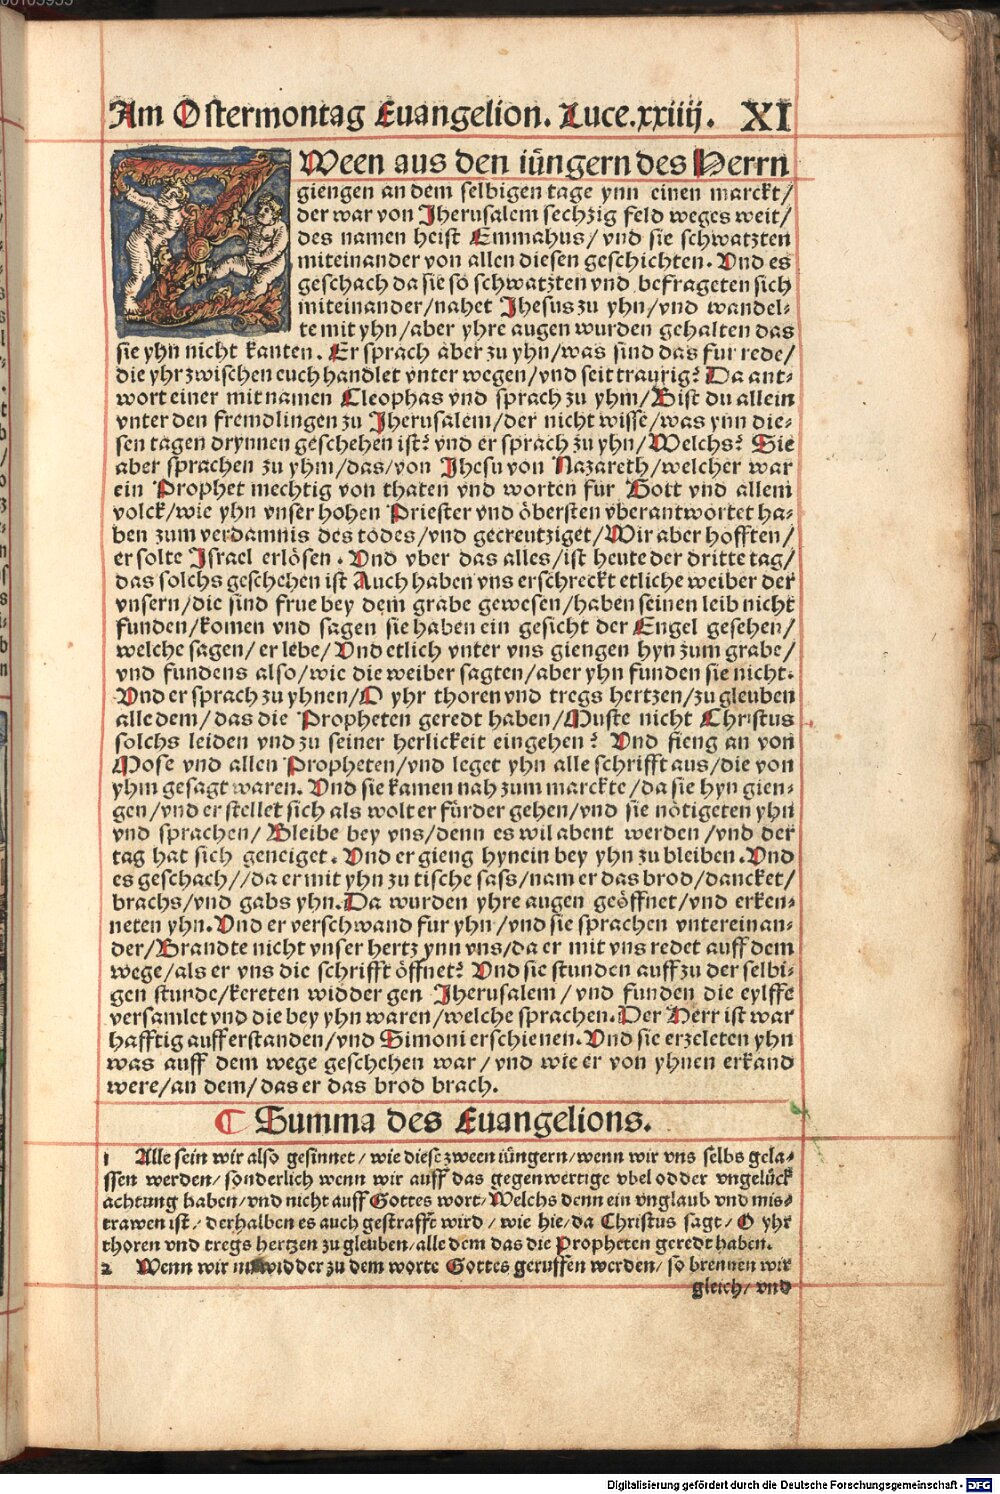 Am Ostermontag Euangelion. Luce.xxiiij. XI
ZWeen aus den iüngern des Herrn
giengen an dem selbigen tage ynn einen marckt/
der war von Jherusalem sechzig feld weges weit/
des namen heist Emmahus/ vnd sie schwatzten
miteinander von allen diesen geschichten. Vnd es
geschach da sie so schwatzten vnd befrageten sich
miteinander/nahet Jhesus zu yhn/vnd wandel-
te mit yhn/aber yhre augen wurden gehalten das
sie yhn nicht kanten. Er sprach aber zu yhn/was sind das fur rede/
die yhr zwischen euch handlet vnter wegen/vnd seit traurig? Da ant-
wort einer mit namen Cleophas vnd sprach zu yhm/Bist du allein
vnter den fremdlingen zu Jherusalem/der nicht wisse/was ynn die-
sen tagen drynnen geschehen ist? vnd er sprach zu yhn/Welchs? Sie
aber sprachen zu yhm/das/von Jhesu von Nazareth/welcher war
ein Prophet mechtig von thaten vnd worten fur Gott vnd allem
volck/wie yhn vnser hohen Priester vnd öbersten vberantwortet ha-
ben zum verdamnis des todes/vnd gecreutziget/Wir aber hofften/
er solte Israel erlösen. Vnd vber das alles/ist heute der dritte tag/
das solchs geschehen ist Auch haben vns erschreckt etliche weiber der
vnsern/die sind frue bey dem grabe gewesen/haben seinen leib nicht
funden/komen vnd sagen sie haben ein gesicht der Engel gesehen/
welche sagen/ er lebe/Vnd etlich vnter vns giengen hyn zum grabe/
vnd fundens also/wie die weiber sagten/aber yhn funden sie nicht.
Vnd er sprach zu yhnen/O yhr thoren vnd tregs hertzen/zu gleuben
alle dem/das die Propheten geredt haben/Muste nicht Christus
solchs leiden vnd zu seiner herlickeit eingehen? Vnd fieng an von
Mose vnd allen Propheten/vnd leget yhn alle schrifft aus/die von
yhm gesagt waren. Vnd sie kamen nah zum marckte/da sie hyn gien-
gen/vnd er stellet sich als wolt er fürder gehen/vnd sie nötigeten yhn
vnd sprachen/ Bleibe bey vns/denn es wil abent werden/vnd der
tag hat sich geneiget. Vnd er gieng hynein bey yhn zu bleiben. Vnd
es geschach//da er mit yhn zu tische sass/nam er das brod/dancket/
brachs/vnd gabs yhn. Da wurden yhre augen geöffnet/vnd erken-
neten yhn. Vnd er verschwand fur yhn/vnd sie sprachen vntereinan-
der/Brandte nicht vnser hertz ynn vns/da er mit vns redet auff dem
wege/als er vns die schrifft öffnet? Vnd sie stunden auff zu der selbi-
gen stunde/kereten widder gen Jherusalem/ vnd funden die eylffe
versamlet vnd die bey yhn waren/welche sprachen. Der Herr ist war
hafftig aufferstanden/vnd Simoni erschienen. Vnd sie erzeleten yhn
was auff dem wege geschehen war/vnd wie er von yhnen erkand
were/an dem/das er das brod brach.
¶ Summa des Euangelions.
1 Alle sein wir also gesinnet/ wie diese zween iüngern/wenn wir vns selbs gela-
ssen werden/ sonderlich wenn wir auff das gegenwertige vbel odder vngelück
achtung haben/vnd nicht auff Gottes wort/Welchs denn ein vnglaub vnd mis-
trawen ist/ derhalben es auch gestrafft wird/ wie hie/da Christus sagt/ O yhr
thoren vnd tregs hertzen zu gleuben/alle dem das die Propheten geredt haben.
2 Wenn wir nu widder zu dem worte Gottes geruffen werden/ so brennen wir
gleich/ vnd
Digitalisierung gefördert durch die Deutsche Forschungsgemeinschaft - DFG